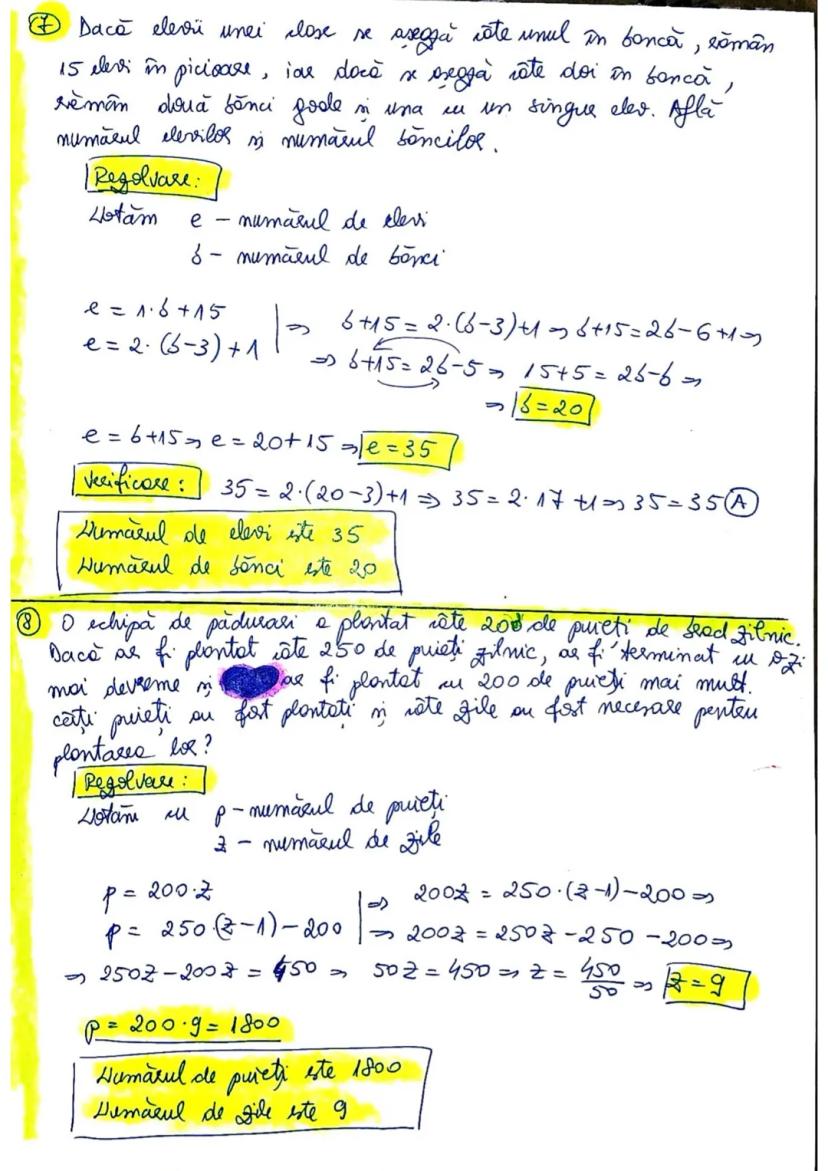 7 Dacă elevii unei clase se așează câte unul în bancă, rămân
15 elevi în picioare, iar dacă se așează câte doi în bancă,
rămân două bănci goale și una cu un singur elev. Află
numărul elevilor și numărul băncilor.
Rezolvare:
Notăm e - numărul de elevi
b - numărul de bănci
e = 1·b+15
e = 2·(b-3)+1
⇒ b+15 = 2·(b-3)+1 ⇒ b+15=2b-6+1⇒
⇒ b+15=2b-5⇒ 15+5 = 2b-b ⇒
⇒ b=20
e = b+15⇒ e = 20+15 ⇒ e = 35
Verificare: 35 = 2·(20-3)+1 ⇒ 35 = 2·17+1⇒ 35=35 (A)
Numărul de elevi este 35
Numărul de bănci este 20
8 O echipă de pădurari a plantat câte 200 de puieți de brad zilnic.
Dacă ar fi plantat câte 250 de puieți zilnic, ar fi terminat cu o zi
mai devreme și ar fi plantat cu 200 de puieți mai mult.
Câți puieți au fost plantați și câte zile au fost necesare pentru
plantarea lor?
Rezolvare:
Notăm cu p - numărul de puieți
z - numărul de zile
p = 200·z
p = 250·(z-1)-200
⇒ 200z = 250·(z-1)-200 ⇒
⇒ 200z = 250z-250-200⇒
⇒ 250z-200z = 450 ⇒ 50z = 450 ⇒ z = 450/50 ⇒ z = 9
p = 200·9 = 1800
Numărul de puieți este 1800
Numărul de zile este 9